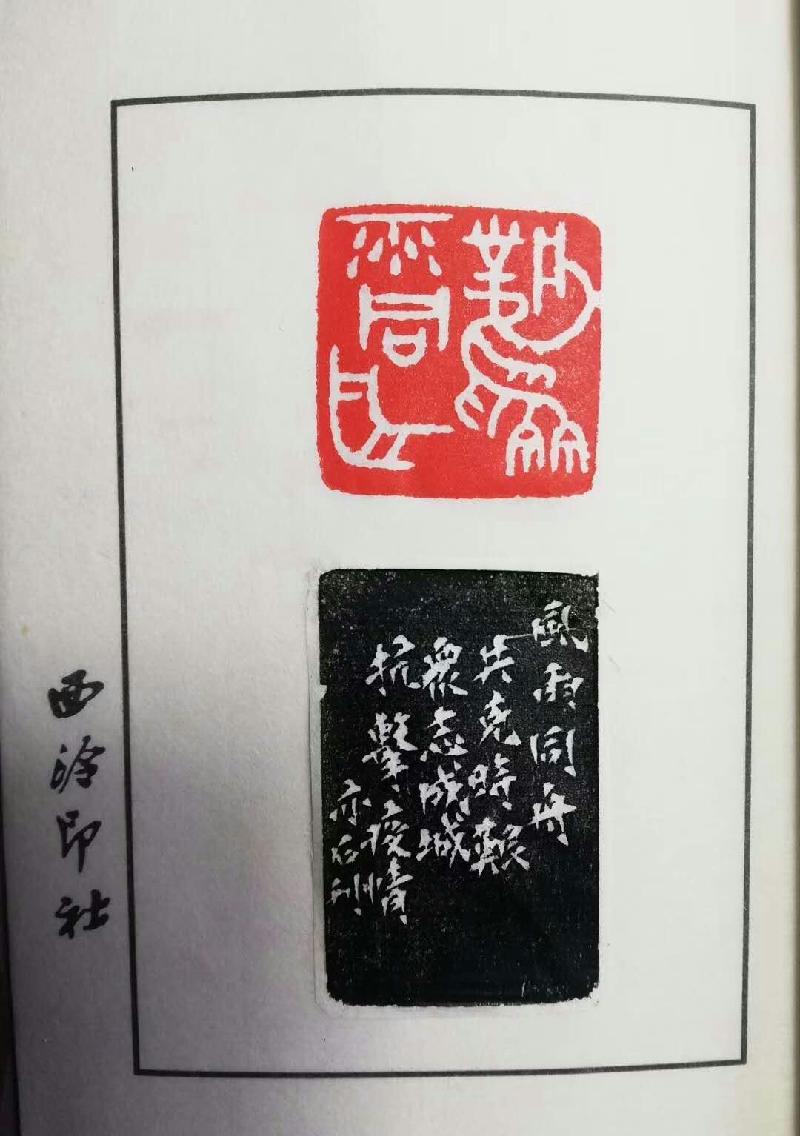 風雨同舟
共克時艱
衆志成城
抗擊疫情
亦石刊
西泠印社